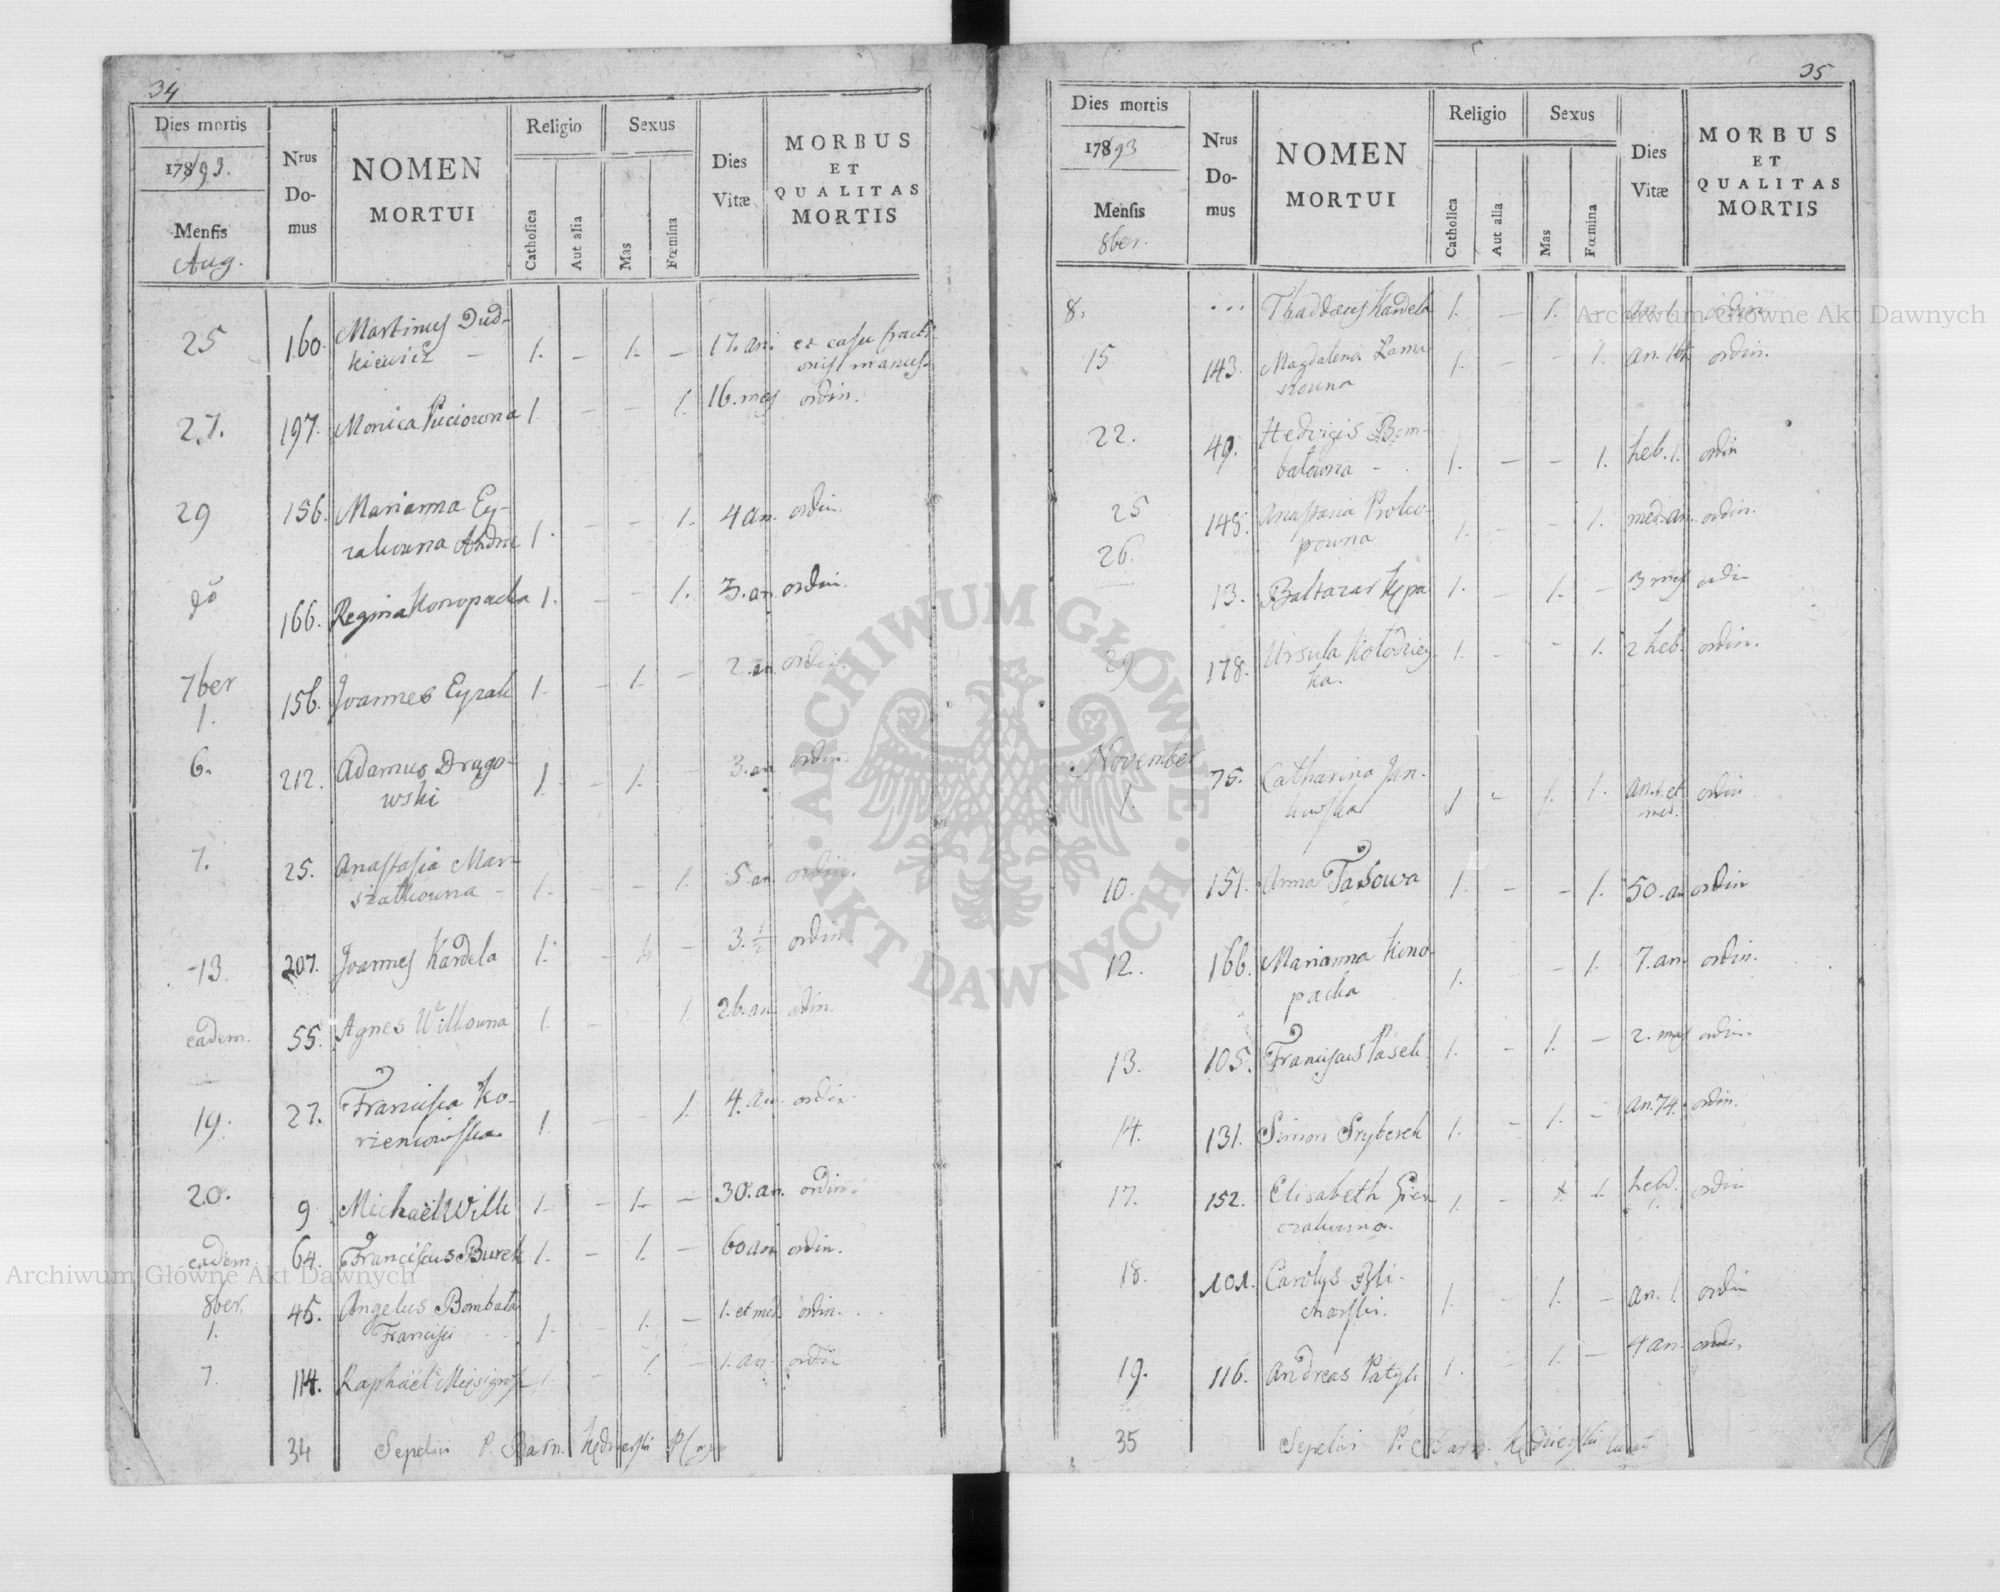 34
Dies mortis
1793.
Mensis
Aug.
Nrus Domus
NOMEN
MORTUI
Religio
Catholica
Aut alia
Sexus
Mas
Fœmina
Dies
Vitæ
MORBUS
ET
QUALITAS
MORTIS
25 160. Martinus Dud- 1. – 1. – 17. an. ex casu fracti-
kiewicz – onis manus.
27. 197. Monica Puciowna 1. – – 1. 16. mes ordin.
29 156. Marianna Ey- 4 an. ordin.
zakowna 1. – – 1.
166. Regina Konopacka 1. – – 1. 3. an ordin.
7ber
1. 156. Joannes Eyzak 1. – 1. – 2. an ordin.
6. 212. Adamus Drago- 3. an ordin.
wski 1. – 1. –
7. 25. Anastasia Mar- 5 an ordin.
szalkowna – 1. – – 1.
13. 207. Joannes Kardela 1. – 1. – 3. 1/2 ordin.
eadem. 55. Agnes Wilkowna 1. – 1. 26. an. ordin.
19. 27. Francisca Ko- 4. an. ordin.
rzeniowska 1. – – 1.
20. 9 Michaël Wilk 1. – 1. – 30. an. ordin.
eadem. 64. Franciscus Burek 1. – 1. – 60 an ordin.
8ber.
1. 45. Angelus Bombala 1. – 1. – 1. et med. ordin.
Francisci
7. 114. Raphaël 1. – 1. – 1. an. ordin
34 Sepelivi P. Barn.
35
Dies mortis
1793
Mensis
8ber.
Nrus Domus
NOMEN
MORTUI
Religio
Catholica
Aut alia
Sexus
Mas
Fœmina
Dies
Vitæ
MORBUS
ET
QUALITAS
MORTIS
8. ... Thaddaeus Kardela 1. – 1. an. 1. ordin.
15 143. Magdalena 1. – – 1. an. ordin.
22. 49. Hedvigis Bom-
balowna – 1. – – 1. heb. 1. ordin
25 145. Anastasia Proko- 1. – – 1. med. an. ordin.
powna
26. 13. Baltazar Kępa 1. – 1. – 3 mes ordin
29 178. Ursula Kołodziey- 1. – – 1. 2 heb. ordin.
ka.
November
1. 75. Catharina Jan-
kowska 1. – 1. 1. an. 1. et med. ordin
10. 151. Anna Tasowa 1. – – 1. 50. an ordin
12. 166. Marianna Kono- 7. an. ordin.
packa 1. – – 1.
13. 105. Franciscus Pasek 1. – 1. – 2. mes ordin.
14. 131. Simon Sryberek 1. – 1. – an. 74. ordin.
17. 152. Elisabeth 1. – 1. hebd. 1. ordin
18. 101. Carolus Bli-
charski. 1. – 1. – an. 1. ordin
19. 116. Andreas Patyk 1. – 1. – 4 an. ordin.
35 Sepelivi P. Barn.
Archiwum Główne Akt Dawnych
Archiwum Główne Akt Dawnych
ARCHIWUM GŁÓWNE · AKT DAWNYCH ·